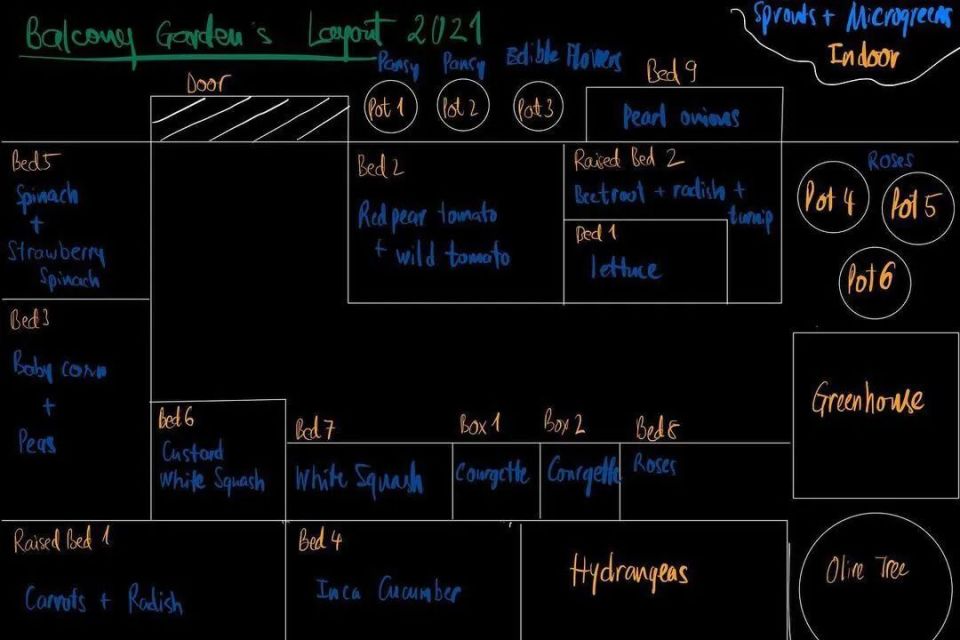 Balcony Garden's Layout 2021
Sprouts + Microgreens
Indoor
Door
Pansy
Pot 1
Pansy
Pot 2
Edible Flowers
Pot 3
Bed 9
Pearl onions
Bed 5
Spinach
+
Strawberry
Spinach
Bed 2
Red pear tomato
+ wild tomato
Raised Bed 2
Beetroot + radish +
turnip
Bed 1
lettuce
Roses
Pot 4
Pot 5
Pot 6
Bed 3
Baby corn
+
Peas
Greenhouse
Bed 6
Custard
White Squash
Bed 7
White Squash
Box 1
Courgette
Box 2
Courgette
Bed 8
Roses
Raised Bed 1
Carrots + Radish
Bed 4
Inca Cucumber
Hydrangeas
Olive Tree